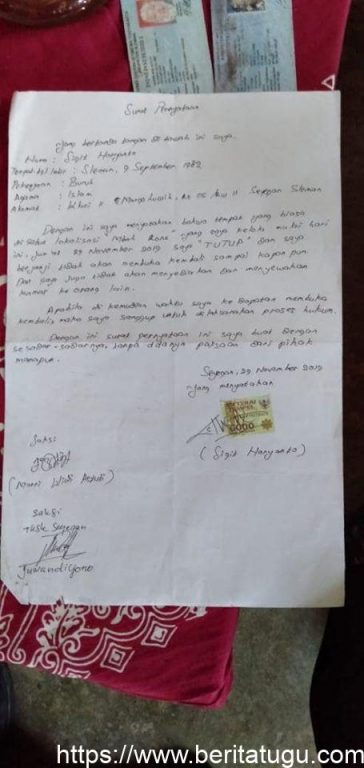 Surat Pernyataan
Yang bertanda tangan di bawah ini saya.
Nama : Sigit Haryanto
Tempat tgl lahir : Sleman, 9 September 1982
Pekerjaan : Buruh
Agama : Islam
Alamat : Rt 05 Rw 11 Seyegan Sleman
Dengan ini saya menyatakan bahwa tempat yang biasa
di sebut lokalisasi "Mbah Rono" yang saya kelola mulai hari
ini, Jum'at 29 November 2019 saya "TUTUP" Dan saya
berjanji tidak akan membuka kembali sampai kapan pun.
Dan saya juga tidak akan menyediakan dan menyewakan
kamar ke orang lain.
Apabila di kemudian waktu saya ke dapatan membuka
kembali, maka saya sanggup untuk di laksanakan proses hukum.
Dengan ini surat pernyataan ini saya buat dengan
sesadar-sadarnya, tanpa adanya paksaan dari pihak
manapun.
Seyegan, 29 November 2019
yang menyatakan
METERAI
TEMPEL
6000
(Sigit Haryanto)
Saksi
Saksi
Seyegan
Juwandiyono
https://www.beritatugu.com